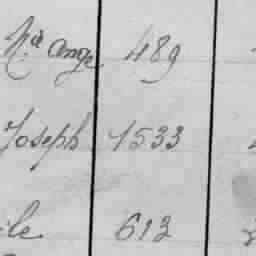 Nd Ange 489
Joseph 1533
ile 612